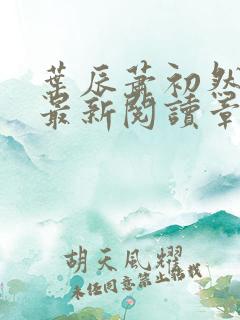 葉辰蕭初然
最新閱讀章
胡天風耀
未經同意禁止轉載